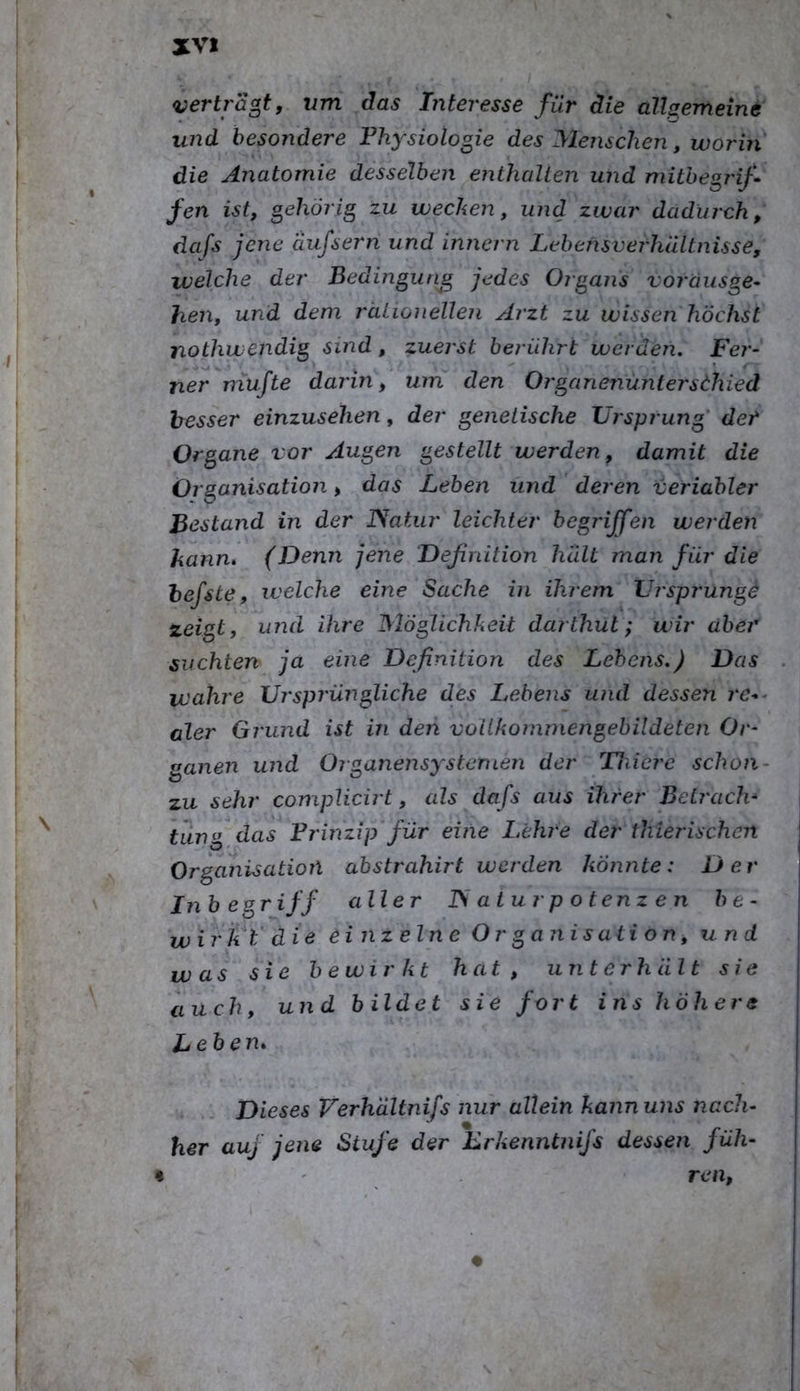 XVI
verträgt, um das Interesse für die allgemeine
und besondere Physiologie des Menschen, worin
die Anatomie desselben enthalten und mitbegrif-
fen ist, gehörig zu wecken, und zwar dadurch,
dafs jene äufsern und innern Lebensverhältnisse,
welche der Bedingung jedes Organs vorausge-
hen, und dem rationellen Arzt zu wissen höchst
nothwendig sind, zuerst berührt werden. Fer-
ner mufte darin, um den Organenunterschied
besser einzusehen, der genetische Ursprung der
Organe vor Augen gestellt werden, damit die
Organisation, das Leben und deren veriabler
Bestand in der Natur leichter begriffen werden
kann. (Denn jene Definition hält man für die
befste, welche eine Sache in ihrem Ursprunge
zeigt, und ihre Möglichkeit darthut; wir aber
suchten ja eine Definition des Lebens.) Das
wahre Ursprüngliche des Lebens und dessen re-
aler Grund ist in den vollkommengebildeten Or-
ganen und Organensystemen der Thiere schon
zu sehr complicirt, als dafs aus ihrer Betrach-
tung das Prinzip für eine Lehre der thierischen
Organisation abstrahirt werden könnte: Der
Inbegriff aller Naturpotenzen be-
wirkt die einzelne Organisation, und
was sie bewirkt hat, unterhält sie
auch, und bildet sie fort ins höhere
Leben.
Dieses Verhältnifs nur allein kann uns nach-
her auf jene Stufe der Erkenntnifs dessen füh-
ren,